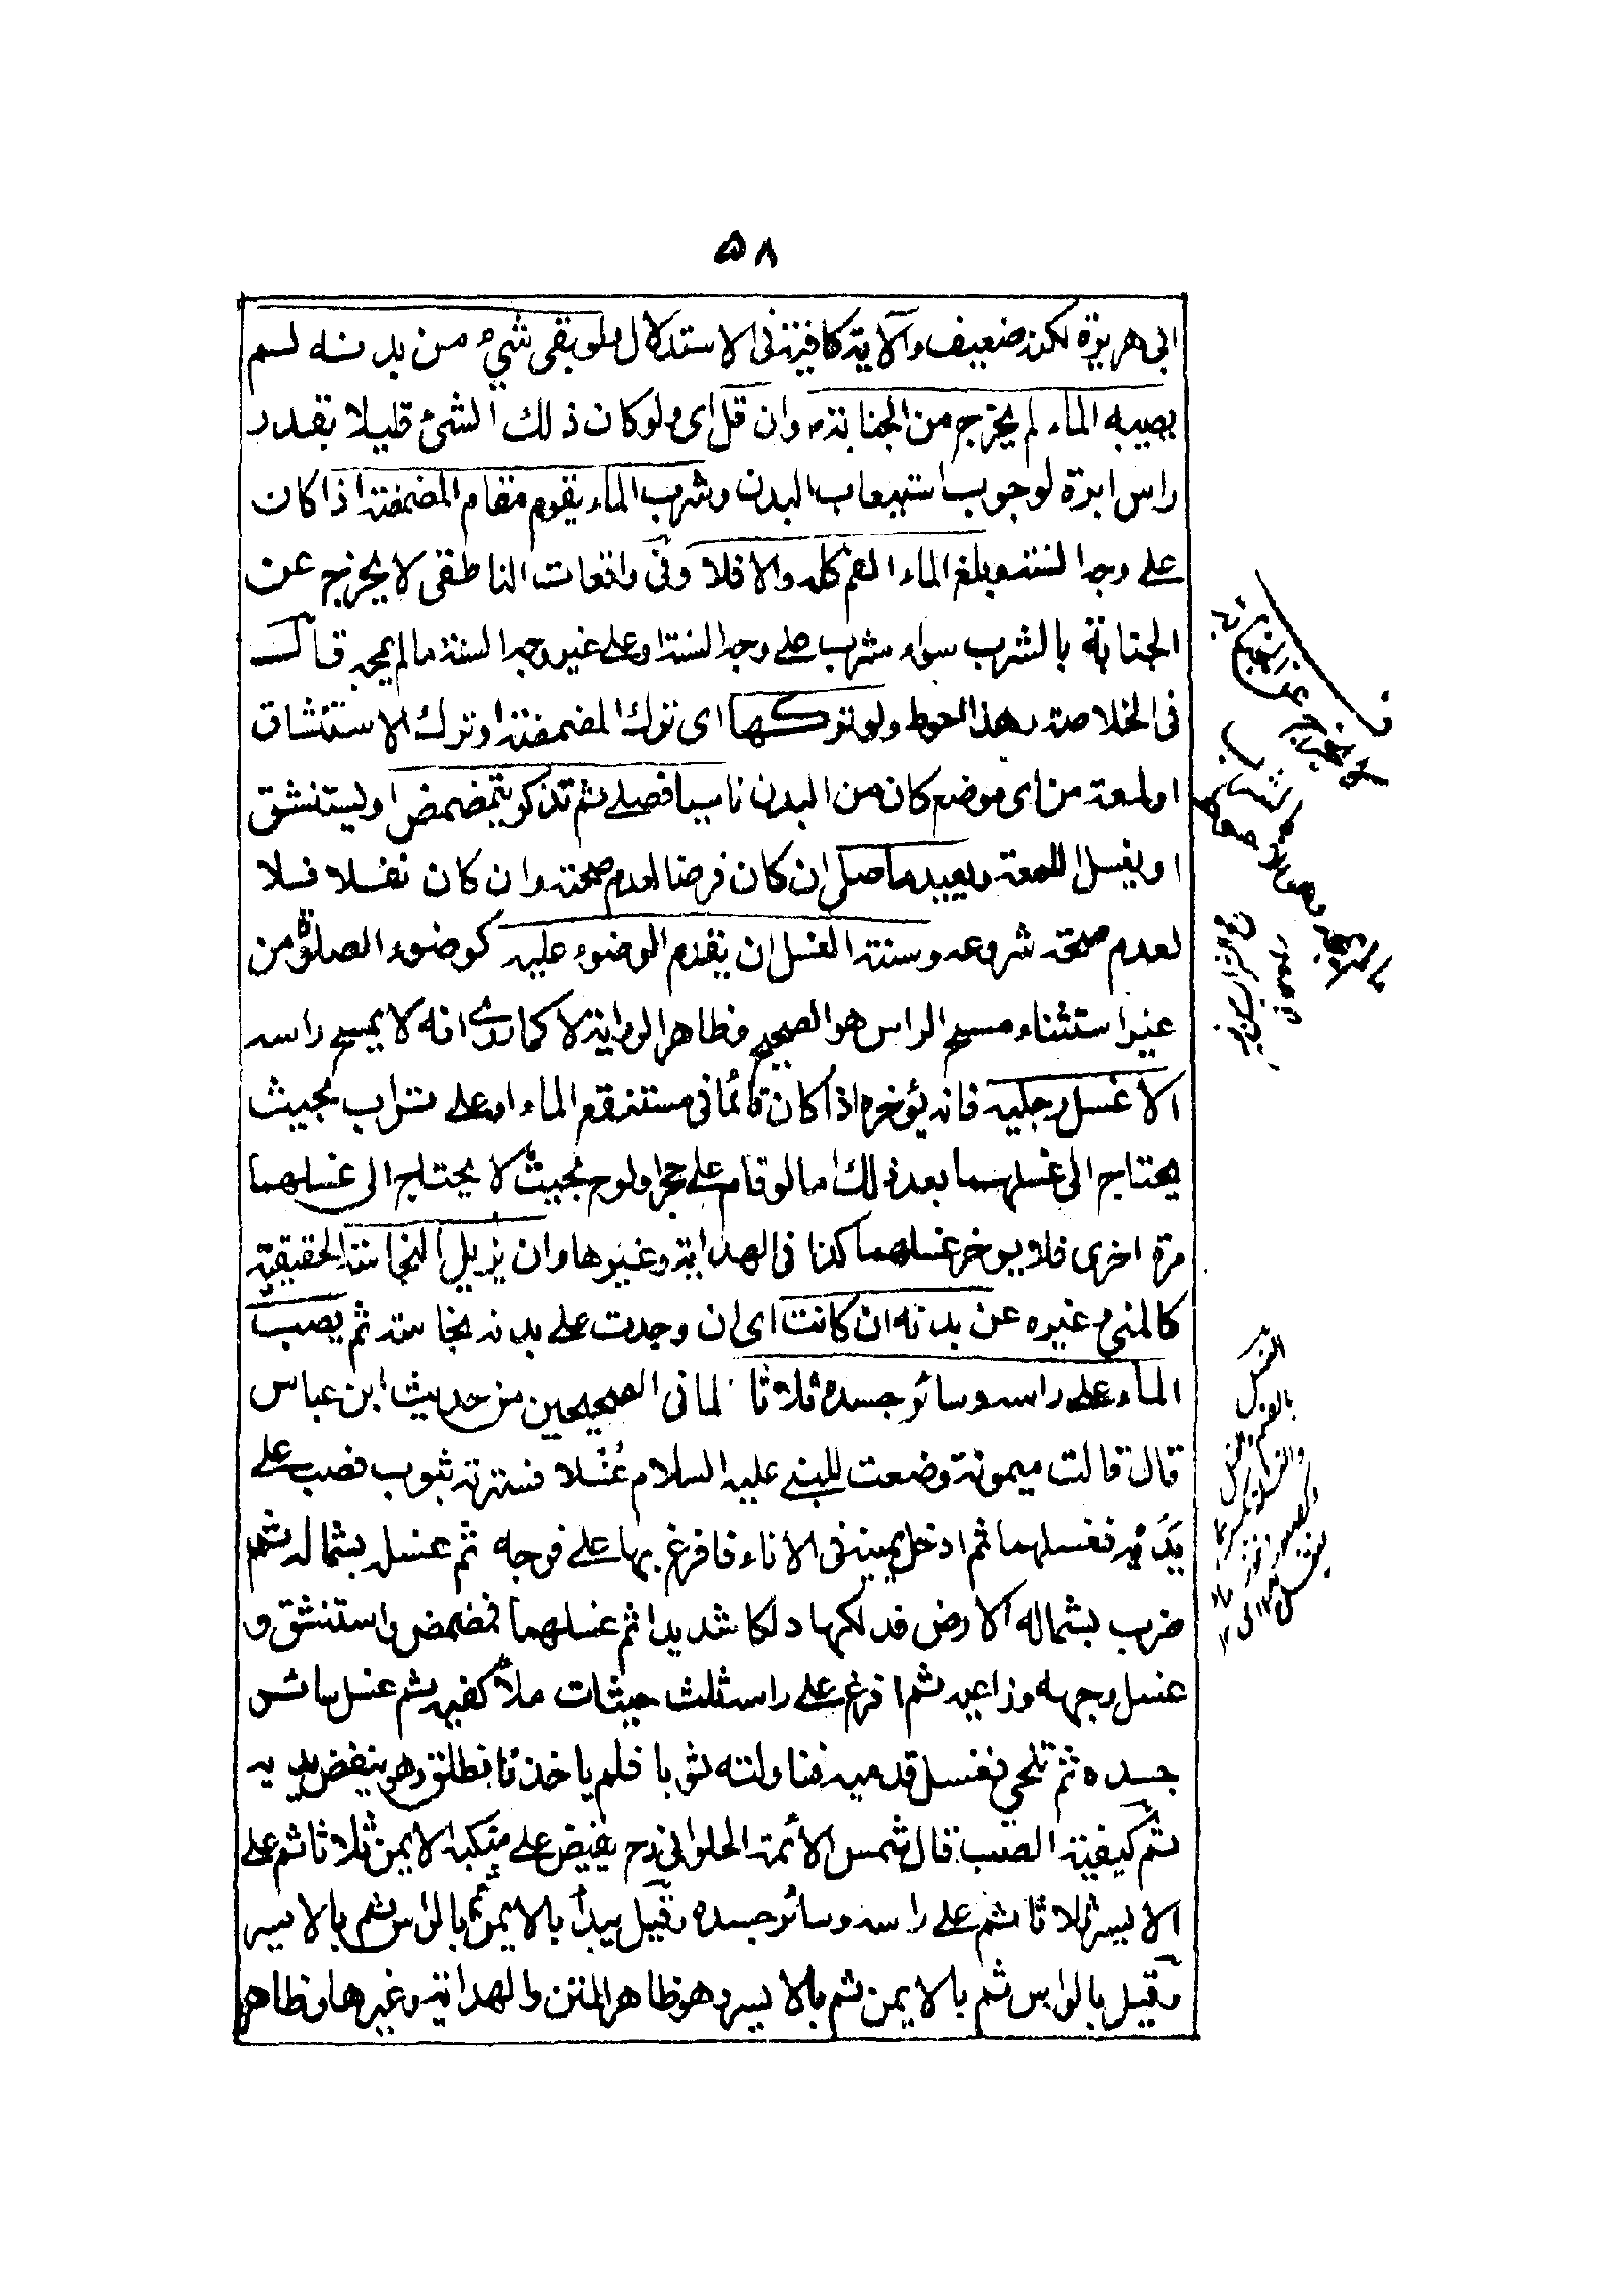 ٥٨
ابى هريرة لكنه ضعيف والآية كافية فى الاستدلال ولو بقى شيء من بدنه لم
يصيبه الماء لم يخرج من الجنابة وان قل اى ولو كان ذلك الشئ قليلا بقدر
راس ابرة لوجوب استيعاب البدن وشرب الماء يقوم مقام المضمضة اذا كان
على وجه السنة ويبلغ الماء الفم كله والا فلا وفى واقعات الناطفى لا يخرج عن
الجنابة بالشرب سواء شرب على وجه السنة او على غير وجه السنة ما لم يمجه قال
فى الخلاصة وهذا احوط ولو تركها اى ترك المضمضة او ترك الاستنشاق
او لمعة من اى موضع كان من البدن ناسيا فصلى ثم تذكر يتمضمض او يستنشق
او يغسل اللمعة ويعيد ما صلى ان كان فرضا لعدم صحته وان كان نفلا فلا
لعدم صحة شروعه وسنة الغسل ان يقدم الوضوء عليه كوضوء الصلوة من
غير استثناء مسح الراس هو الصحيح وظاهر الرواية لا كما روى انه لا يمسح راسه
الا غسل رجليه فانه يؤخره اذا كان قائما فى مستنقع الماء او على تراب بحيث
يحتاج الى غسلهما بعد ذلك اما لو قام على حجر او لوح بحيث لا يحتاج الى غسلهما
مرة اخرى فلا يوخر غسلهما كذا فى الهداية وغيرها وان يزيل النجاسة الحقيقية
كالمنى وغيره عن بدنه ان كانت اى ان وجدت على بدنه نجاسة ثم يصب
الماء على راسه وسائر جسده ثلاثا لما فى الصحيحين من حديث ابن عباس
قال قالت ميمونة وضعت للنبى عليه السلام غُسْلا فسترته بثوب فصب على
يَدَيْه فغسلهما ثم ادخل يمينه فى الاناء فافرغ بها على فرجه ثم غسل بشماله ثم
ضرب بشماله الارض فدلكها دلكا شديدا ثم غسلهما فمضمض واستنشق و
غسل وجهه وذراعيه ثم افرغ على راسه ثلث حيثات ملأ كفيه ثم غسل سائر
جسده ثم تنحى فغسل قدميه فناولته ثوبا فلم ياخذه فانطلق وهو ينفض يديه
ثم كيفية الصب قال شمس الأئمة الحلوانى رح يفيض على منكبه الايمن ثلاثا ثم على
الايسر ثلاثا ثم على راسه وسائر جسده وقيل يبدأ بالايمن ثم بالراس ثم بالايسر
وقيل بالراس ثم بالايمن ثم بالايسر وهو ظاهر المتن والهداية وغيرها وظاهر